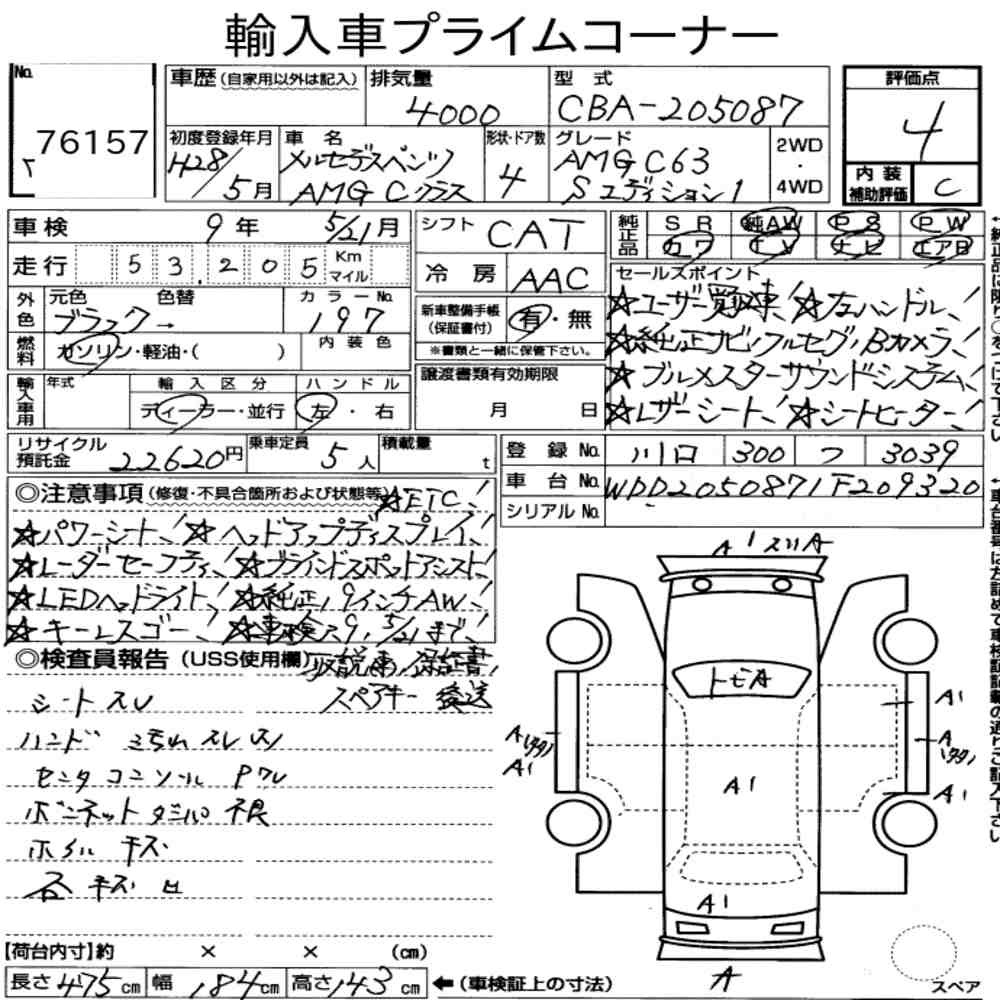 輸入車プライムコーナー
No. 76157
車歴 (自家用以外は記入)
排気量 4000
型式 CBA-205087
評価点 4
内装補助評価 C
初度登録年月 H28/5月
車名 メルセデスベンツ AMG Cクラス
形状・ドア数 4
グレード AMG C63 Sエディション1
2WD・4WD
車検 9年 5/21月
シフト CAT
純正品 SR 純AW PS PW
カワ TV ナビ エアB
走行 53,205 Km マイル
冷房 AAC
外色 元色 色替 ブラック→
カラーNo. 197
内装色
燃料 ガソリン・軽油・( )
新車整備手帳(保証書付) 有・無
※書類と一緒に保管下さい。
セールスポイント
☆ユーザー買取車! ☆左ハンドル!
☆純正ナビ・フルセグ・Bカメラ!
☆ブルメスターサウンドシステム!
☆レザーシート! ☆シートヒーター!
輸入車用 年式 輸入区分 ハンドル
ディーラー・並行 左・右
譲渡書類有効期限
月 日
リサイクル預託金 22620円
乗車定員 5人
積載量 t
登録No. 川口 300 つ 3039
車台No. WDD2050871F209320
シリアルNo.
◎注意事項 (修復・不具合箇所および状態等) ☆ETC!
☆パワーシート! ☆ヘッドアップディスプレイ!
☆レーダーセーフティ! ☆ブラインドスポットアシスト!
☆LEDヘッドライト! ☆純正19インチAW!
☆キーレスゴー! ☆車検R9,5/21まで!
◎検査員報告 (USS使用欄) 取説有/保証書
スペアキー 後送
シートスレ
ハンドル 汚れ スレ
センタコンソール
ボンネット ダンパ 不良
ホイル キズ
各 キズ 凹
A1 スリA
トビA
A1
A
A1
A1
A
A1
A1
A1
A
スペア
【荷台内寸】約 × × (cm)
長さ 475cm 幅 184cm 高さ 143cm ←(車検証上の寸法)
↑純正品は限り○をつけて下さい
↑車台番号は左詰めで車検証記載の通りご記入下さい